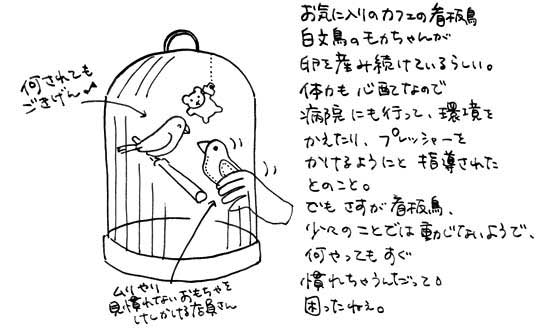 お気に入りのカフェの看板鳥
白文鳥のモカちゃんが
卵を産み続けているらしい。
体力も心配なので
病院にも行って、環境を
かえたり、プレッシャーを
かけるようにと指導された
とのこと。
でもさすが看板鳥、
少々のことでは動じないようで、
何やってもすぐ
慣れちゃうんだって。
困ったねぇ。
何されても
ごきげん♪
ムリやり
見慣れてないおもちゃを
けしかける店員さん